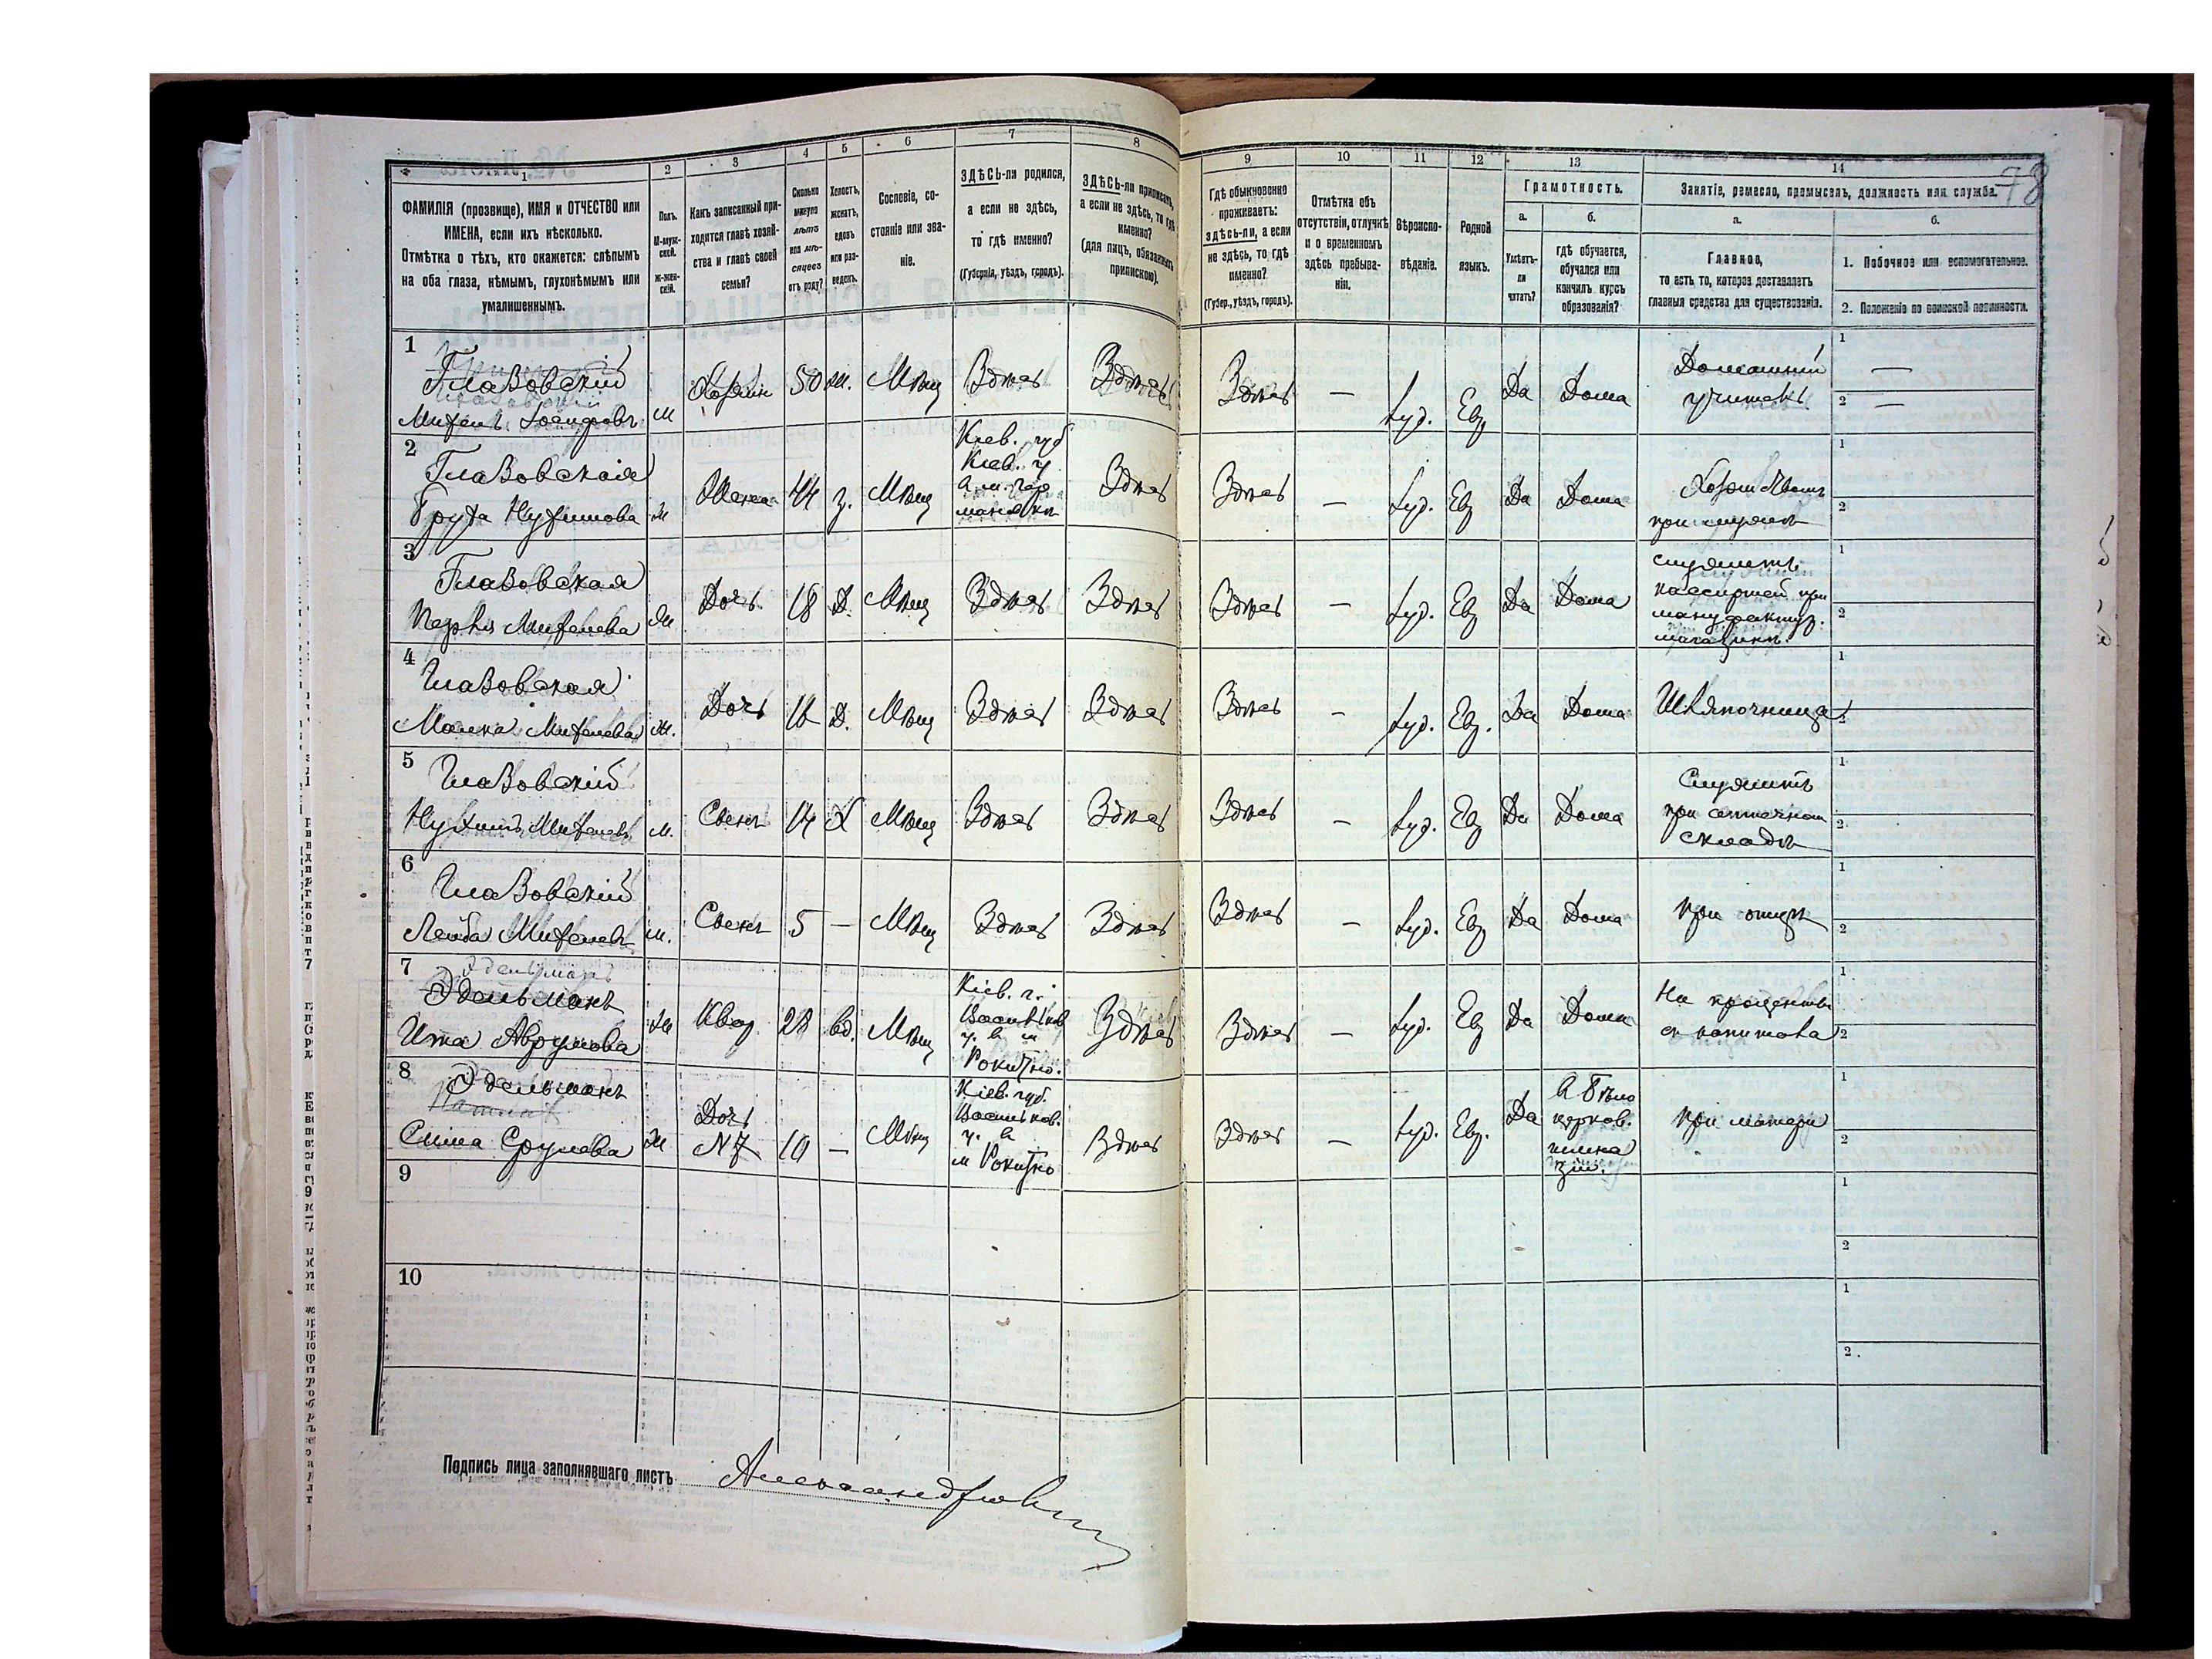 78
1
ФАМИЛІЯ (прозвище), ИМЯ и ОТЧЕСТВО или
ИМЕНА, если ихъ нѣсколько.
Отмѣтка о тѣхъ, кто окажется: слѣпымъ
на оба глаза, нѣмымъ, глухонѣмымъ или
умалишеннымъ.
2
Полъ.
М-муж-
ской.
Ж-жен-
скій.
3
Какъ записанный при-
ходится главѣ хозяй-
ства и главѣ своей
семьи?
4
Сколько
минуло
лѣтъ
или мѣ-
сяцевъ
отъ роду?
5
Холостъ,
женатъ,
вдовъ
или раз-
веденъ.
6
Сословіе, со-
стояніе или зва-
ніе.
7
ЗДѢСЬ-ли родился,
а если не здѣсь,
то гдѣ именно?
(Губернія, уѣздъ, городъ).
8
ЗДѢСЬ-ли приписанъ,
а если не здѣсь, то гдѣ
именно?
(для лицъ, обязанныхъ
припискою).
9
Гдѣ обыкновенно
проживаетъ:
здѣсь-ли, а если
не здѣсь, то гдѣ
именно?
(Губер., уѣздъ, городъ).
10
Отмѣтка объ
отсутствіи, отлучкѣ
и о временномъ
здѣсь пребыва-
ніи.
11
Вѣроиспо-
вѣданіе.
12
Родной
языкъ.
13
Грамотность.
а.
Умѣетъ-
ли
читать?
б.
гдѣ обучается,
обучался или
кончилъ курсъ
образованія?
14
Занятіе, ремесло, промыселъ, должность или служба.
а.
Главное,
то есть то, которое доставляетъ
главныя средства для существованія.
б.
1. Побочное или вспомогательное.
2. Положеніе по воинской повинности.
1
Глазовскій
М
Хозяин
50
ж.
Мѣщ
Здѣсь
Здѣсь
Здѣсь
—
Іуд.
Евр
Да
Дома
Домашній
учитель
1
—
2
—
2
Глазовская
Нухимова
Ж
Жена
44
з.
Мѣщ
Кіев. губ
Кіев. у.
Здѣсь
Здѣсь
—
Іуд.
Евр
Да
Дома
при мужѣ
1
2
3
Глазовская
Ж
Дочь
18
Д.
Мѣщ
Здѣсь
Здѣсь
Здѣсь
—
Іуд.
Евр
Да
Дома
служитъ
кассиршей при
мануфактур.
магазинѣ.
1
2
4
Глазовская
Малка
Ж.
Дочь
16
Д.
Мѣщ
Здѣсь
Здѣсь
Здѣсь
—
Іуд.
Евр.
Да
Дома
Шляпочница
1
2
5
Глазовскій
Нухимъ
М.
Сынъ
14
Х
Мѣщ
Здѣсь
Здѣсь
Здѣсь
—
Іуд.
Евр
Да
Дома
Служитъ
при
складѣ
1
2
6
Глазовскій
Лейба
М.
Сынъ
5
—
Мѣщ
Здѣсь
Здѣсь
Здѣсь
—
Іуд.
Евр
Да
Дома
при отцѣ
1
2
7
Эдельманъ
Эдельманъ
Ита Аврумова
Ж
Квар.
28
вд.
Мѣщ
Кіев. г.
Васильков
у. в м
Рокитно.
Здѣсь
Здѣсь
—
Іуд.
Евр
Да
Дома
На проценты
съ капитала
1
2
8
Эдельманъ
Срулева
Ж
Дочь
N 7
10
—
Мѣщ
Кіев. губ.
Васильков.
у. в
м Рокитно
Здѣсь
Здѣсь
—
Іуд.
Евр.
Да
в Бѣло
церков.
гимна
зіи.
при матери
1
2
9
1
2
10
1
2.
Подпись лица заполнявшаго листъ